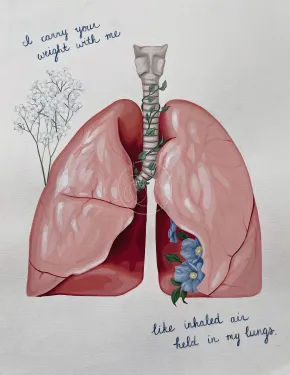 I carry your
weight with me
like inhaled air
held in my lungs.